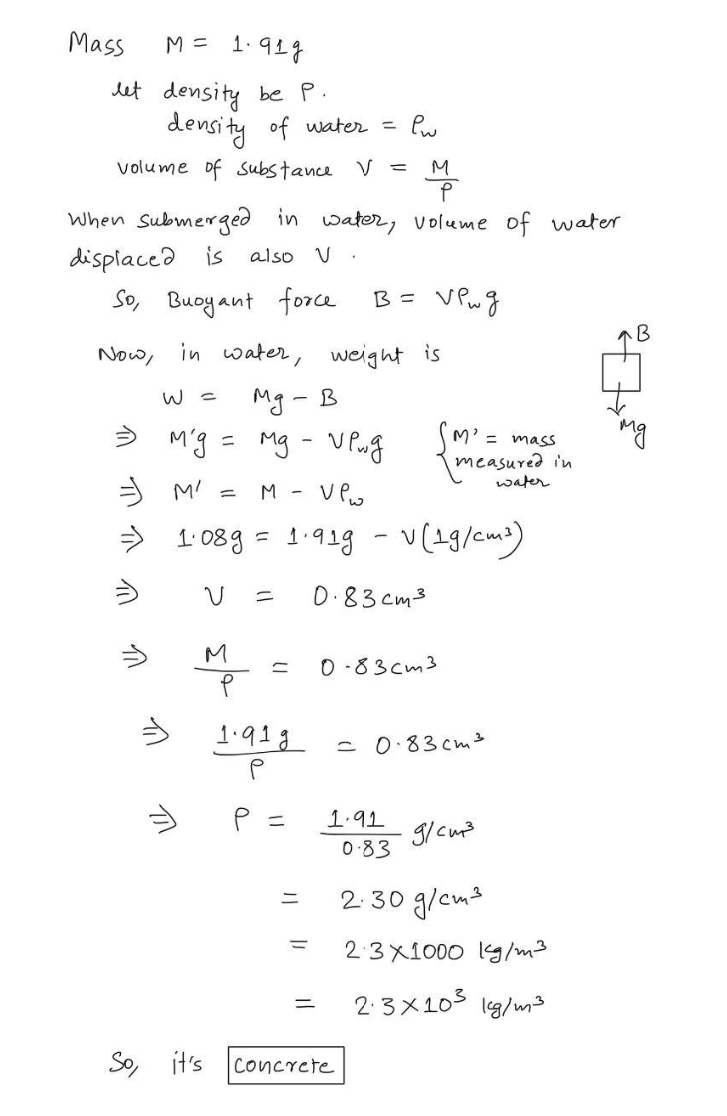 Mass M = 1.91g
let density be ρ.
density of water = ρw
volume of substance V = M/ρ
When submerged in water, volume of water
displaced is also V.
So, Buoyant force B = Vρwg
B
Now, in water, weight is
W = Mg - B
Mg
⇒ M'g = Mg - Vρwg {M' = mass
measured in
water
⇒ M' = M - Vρw
⇒ 1.08g = 1.91g - V(1g/cm³)
⇒ V = 0.83cm³
⇒ M/ρ = 0.83cm³
⇒ 1.91g/ρ = 0.83cm³
⇒ ρ = 1.91/0.83 g/cm³
= 2.30 g/cm³
= 2.3×1000 kg/m³
= 2.3×10³ kg/m³
So, it's concrete